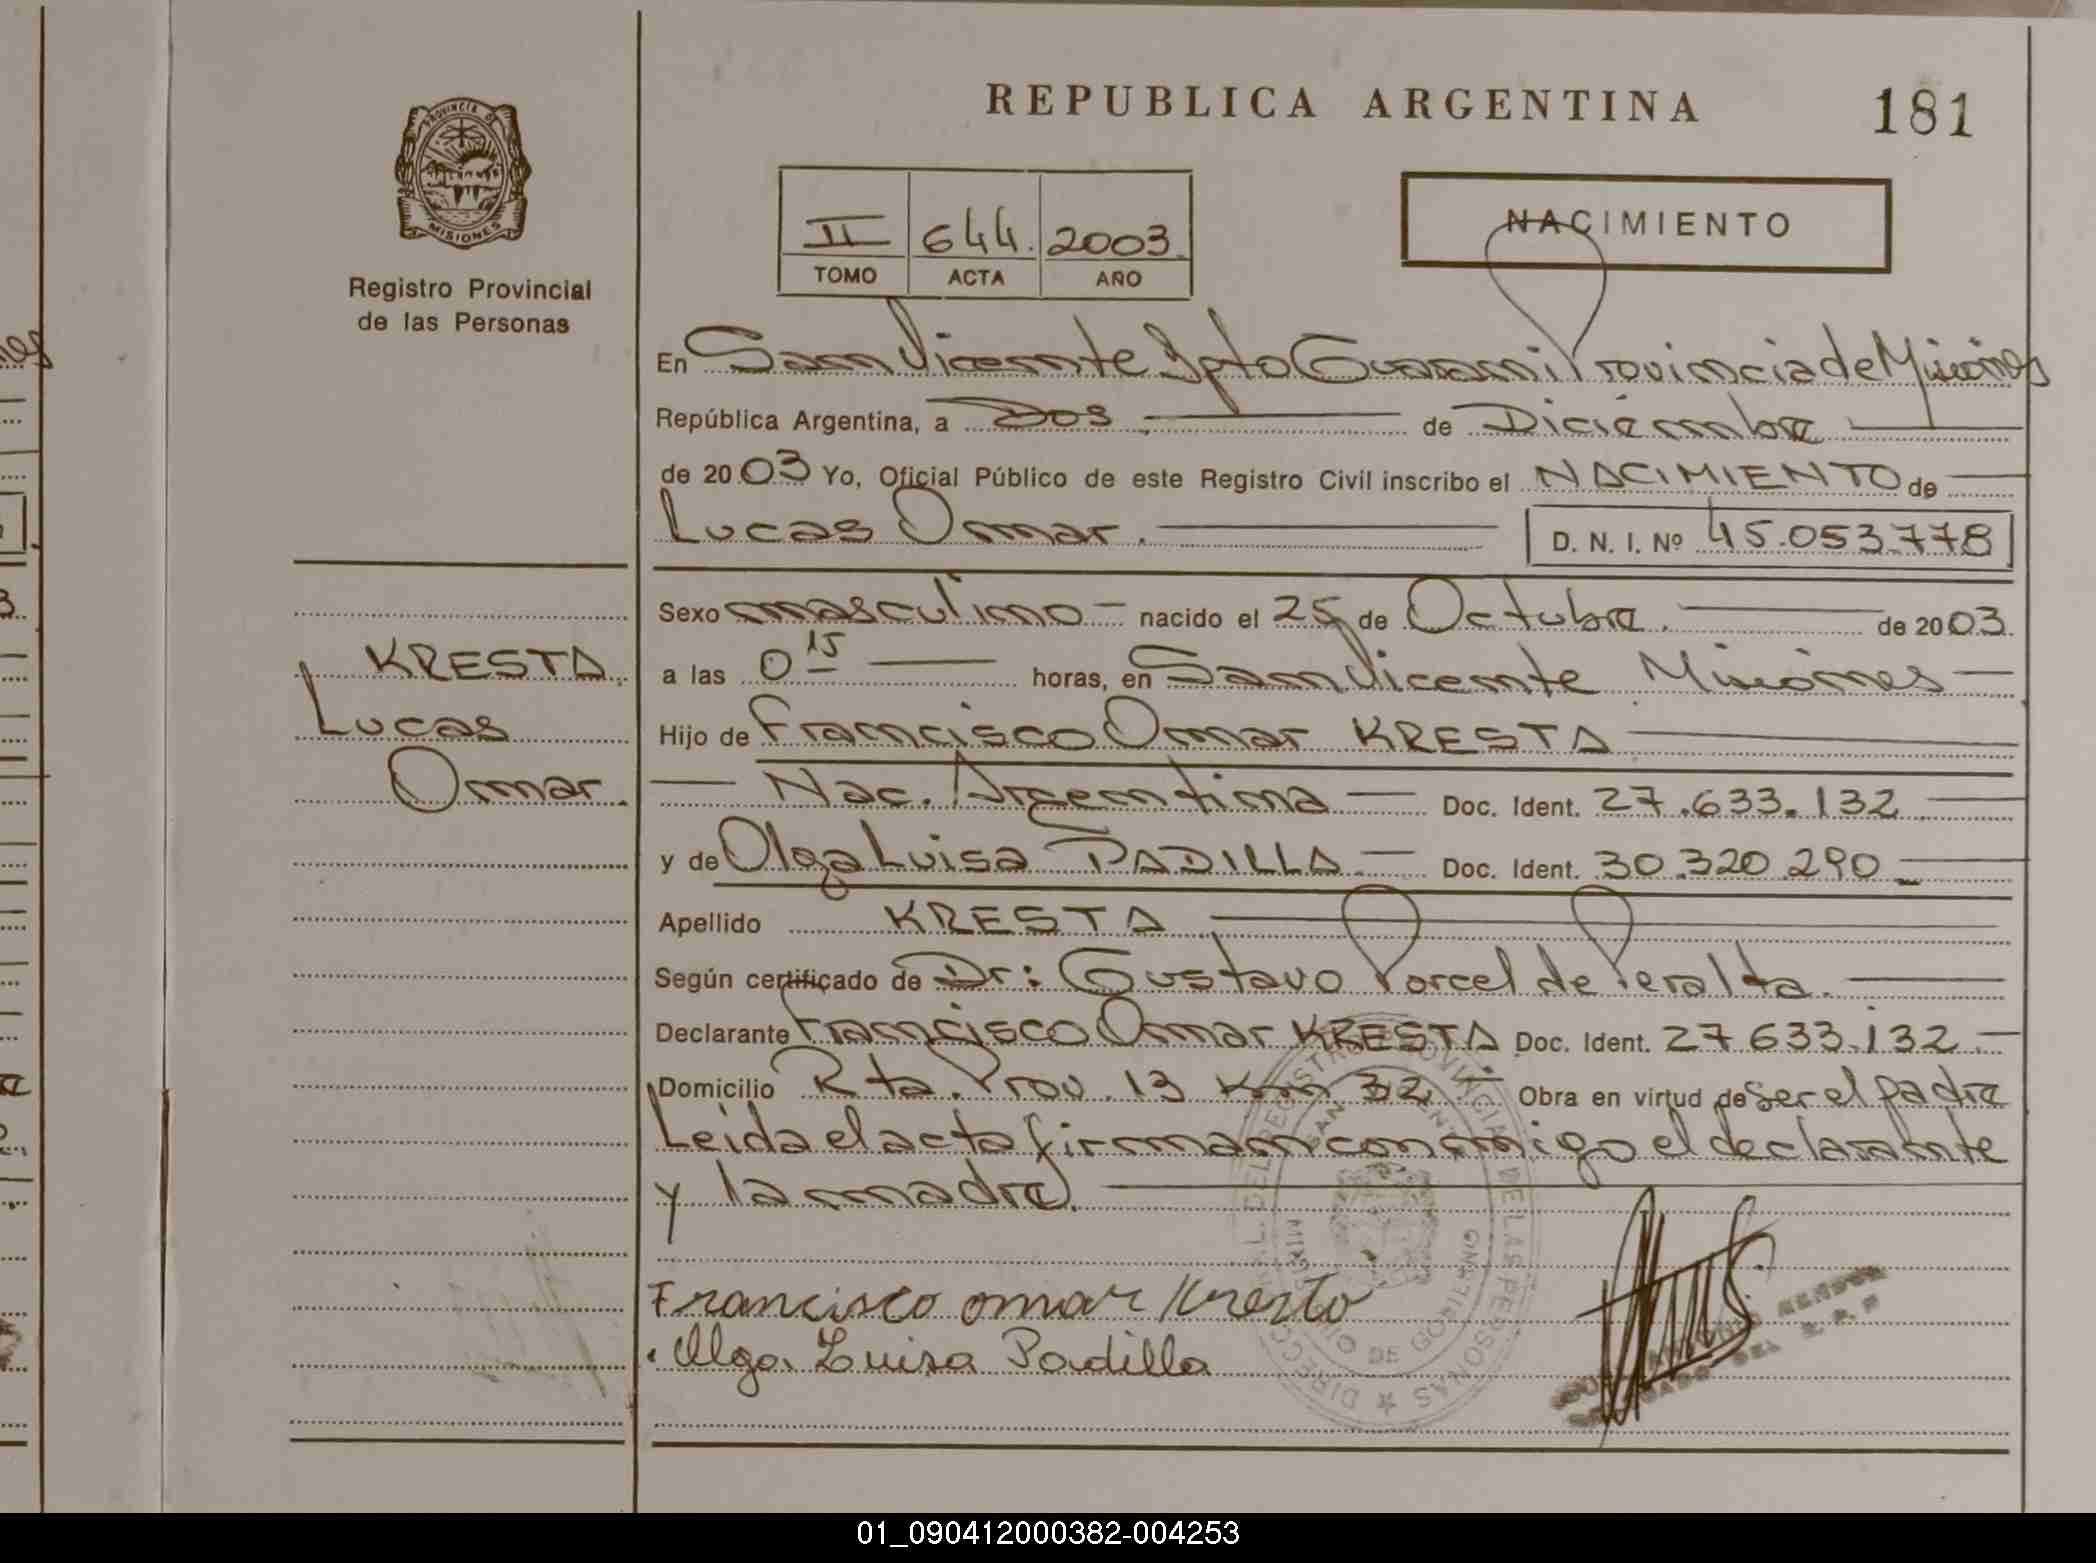 REPUBLICA ARGENTINA
181
PROVINCIA DE
MISIONES
Registro Provincial
de las Personas
II 644. 2003.
TOMO ACTA AÑO
NACIMIENTO
En San Vicente Dpto Guarani Provincia de Misiones
República Argentina, a Dos. de Diciembre
de 2003 Yo, Oficial Público de este Registro Civil inscribo el NACIMIENTO de
Lucas Omar. D. N. I. Nº 45.053.778
Sexo masculino nacido el 25 de Octubre. de 2003.
a las 0 15 horas, en San Vicente Misiones
Hijo de Francisco Omar KRESTA
Nac. Argentina Doc. Ident. 27.633.132
y de Olga Luisa PADILLA. Doc. Ident. 30.320.290
Apellido KRESTA
Según certificado de Dr: Gustavo Porcel de Peralta.
Declarante Francisco Omar KRESTA Doc. Ident. 27.633.132.
Domicilio Rta. Prov. 13 Km 32. Obra en virtud de ser el padre
Leida el acta firman conmigo el declarante
y la madre.
Francisco omar Kresta
Olga Luisa Padilla
KRESTA.
Lucas
Omar.
01_090412000382-004253